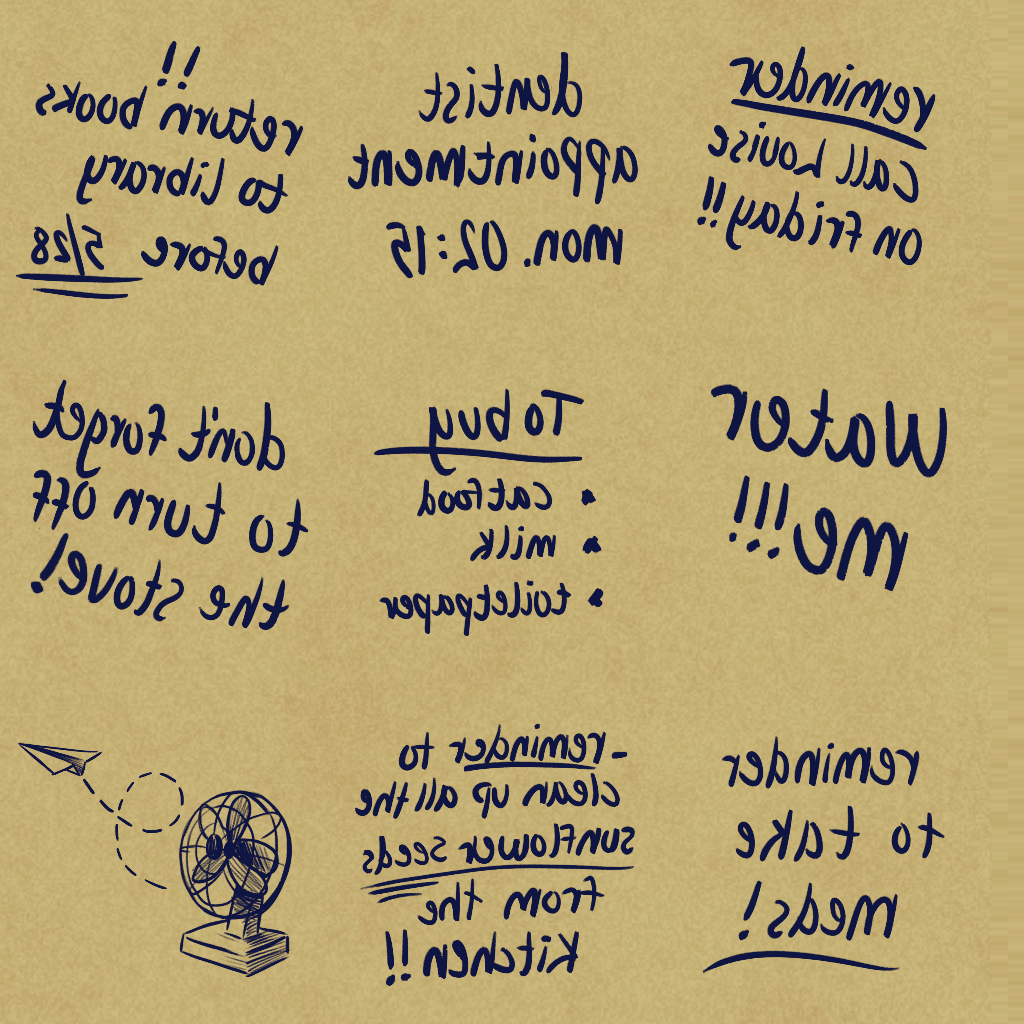 reminder
call Louise
on friday!!
dentist
appointment
mon. 02:15
!!
return books
to library
before 5/28
Water
me!!!
To buy
• catfood
• milk
• toiletpaper
don't forget
to turn off
the stove!
reminder
to take
meds!
-reminder to
clean up all the
sunflower seeds
from the
Kitchen!!